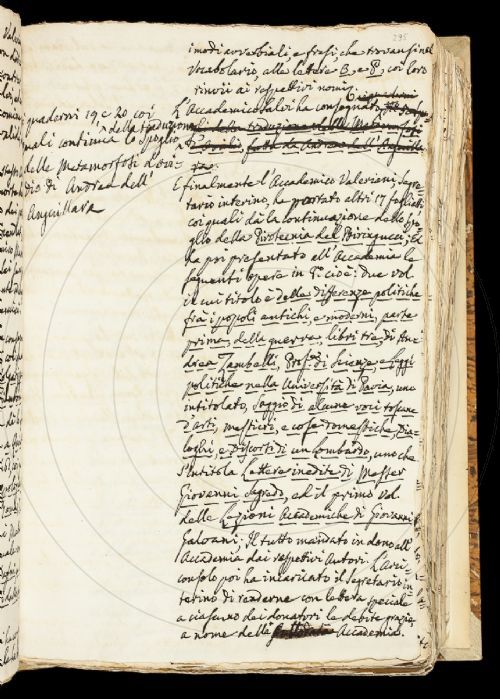 295
i modi avverbiali, e frasi, che trovansi nel
Vocabolario, alle lettere B, e P, coi loro
rinvii ai respettivi nomi.
L'Accademico Salvi ha consegnato i quaderni
quaderni 19 e 20 coi
quali continua lo spoglio della traduzione
delle Metamorfosi d'Ovi=
dio di Andrea dell'
Anguillara
E finalmente l'Accademico Valeriani, Segre=
tario interino, ha portati altri 17 foglietti
coi quali dà la continuazione dello spo
glio della Pirotecnia del Biringucci; Ed
ha poi presentato all'Accademia le
seguenti opere in 8.º cioè: Due vol.
il cui titolo è delle differenze politiche
fra i popoli antichi, e moderni, parte
prima, della guerra, libri tre di An=
drea Zambelli, Prof. di Scienze, e Leggi
politiche nella Università di Pavia, uno
intitolato, Saggio di alcune voci toscane
d'arti, mestieri, e cose domestiche, Dia=
loghi, e Discorsi di un Lombardo, uno che
s'intitola Lettere inedite di Messer
Giovanni Sagredo, ed il primo Vol.
delle Lezioni Accademiche di Giovanni
Galvani; Il tutto mandato in dono all'
Accademia dai respettivi Autori. L'Arci=
consolo poi ha incaricato il Segretario in=
terino di renderne con lettera speciale
a ciascuno dei donatori le debite grazie
a nome della Accademia.